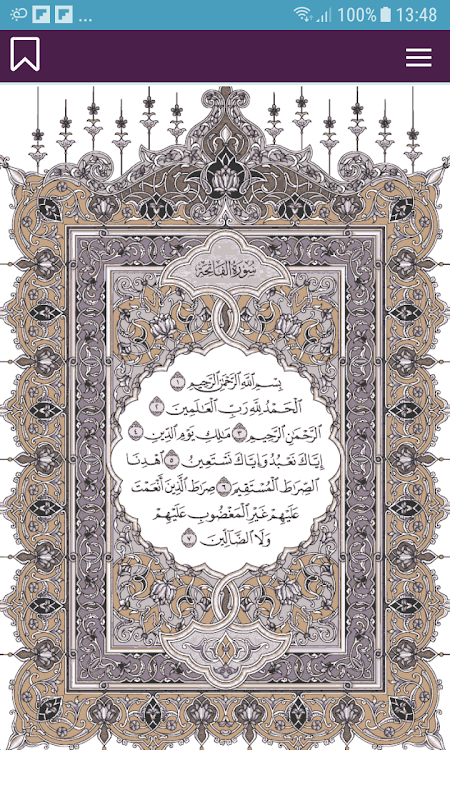 ... 100% 13:48
سُورَةُ الفَاتِحَةِ
بِسْمِ اللَّهِ الرَّحْمَٰنِ الرَّحِيمِ ١
الْحَمْدُ لِلَّهِ رَبِّ الْعَالَمِينَ ٢
الرَّحْمَٰنِ الرَّحِيمِ ٣ مَالِكِ يَوْمِ الدِّينِ ٤
إِيَّاكَ نَعْبُدُ وَإِيَّاكَ نَسْتَعِينُ ٥ اهْدِنَا
الصِّرَاطَ الْمُسْتَقِيمَ ٦ صِرَاطَ الَّذِينَ أَنْعَمْتَ
عَلَيْهِمْ غَيْرِ الْمَغْضُوبِ عَلَيْهِمْ
وَلَا الضَّالِّينَ ٧